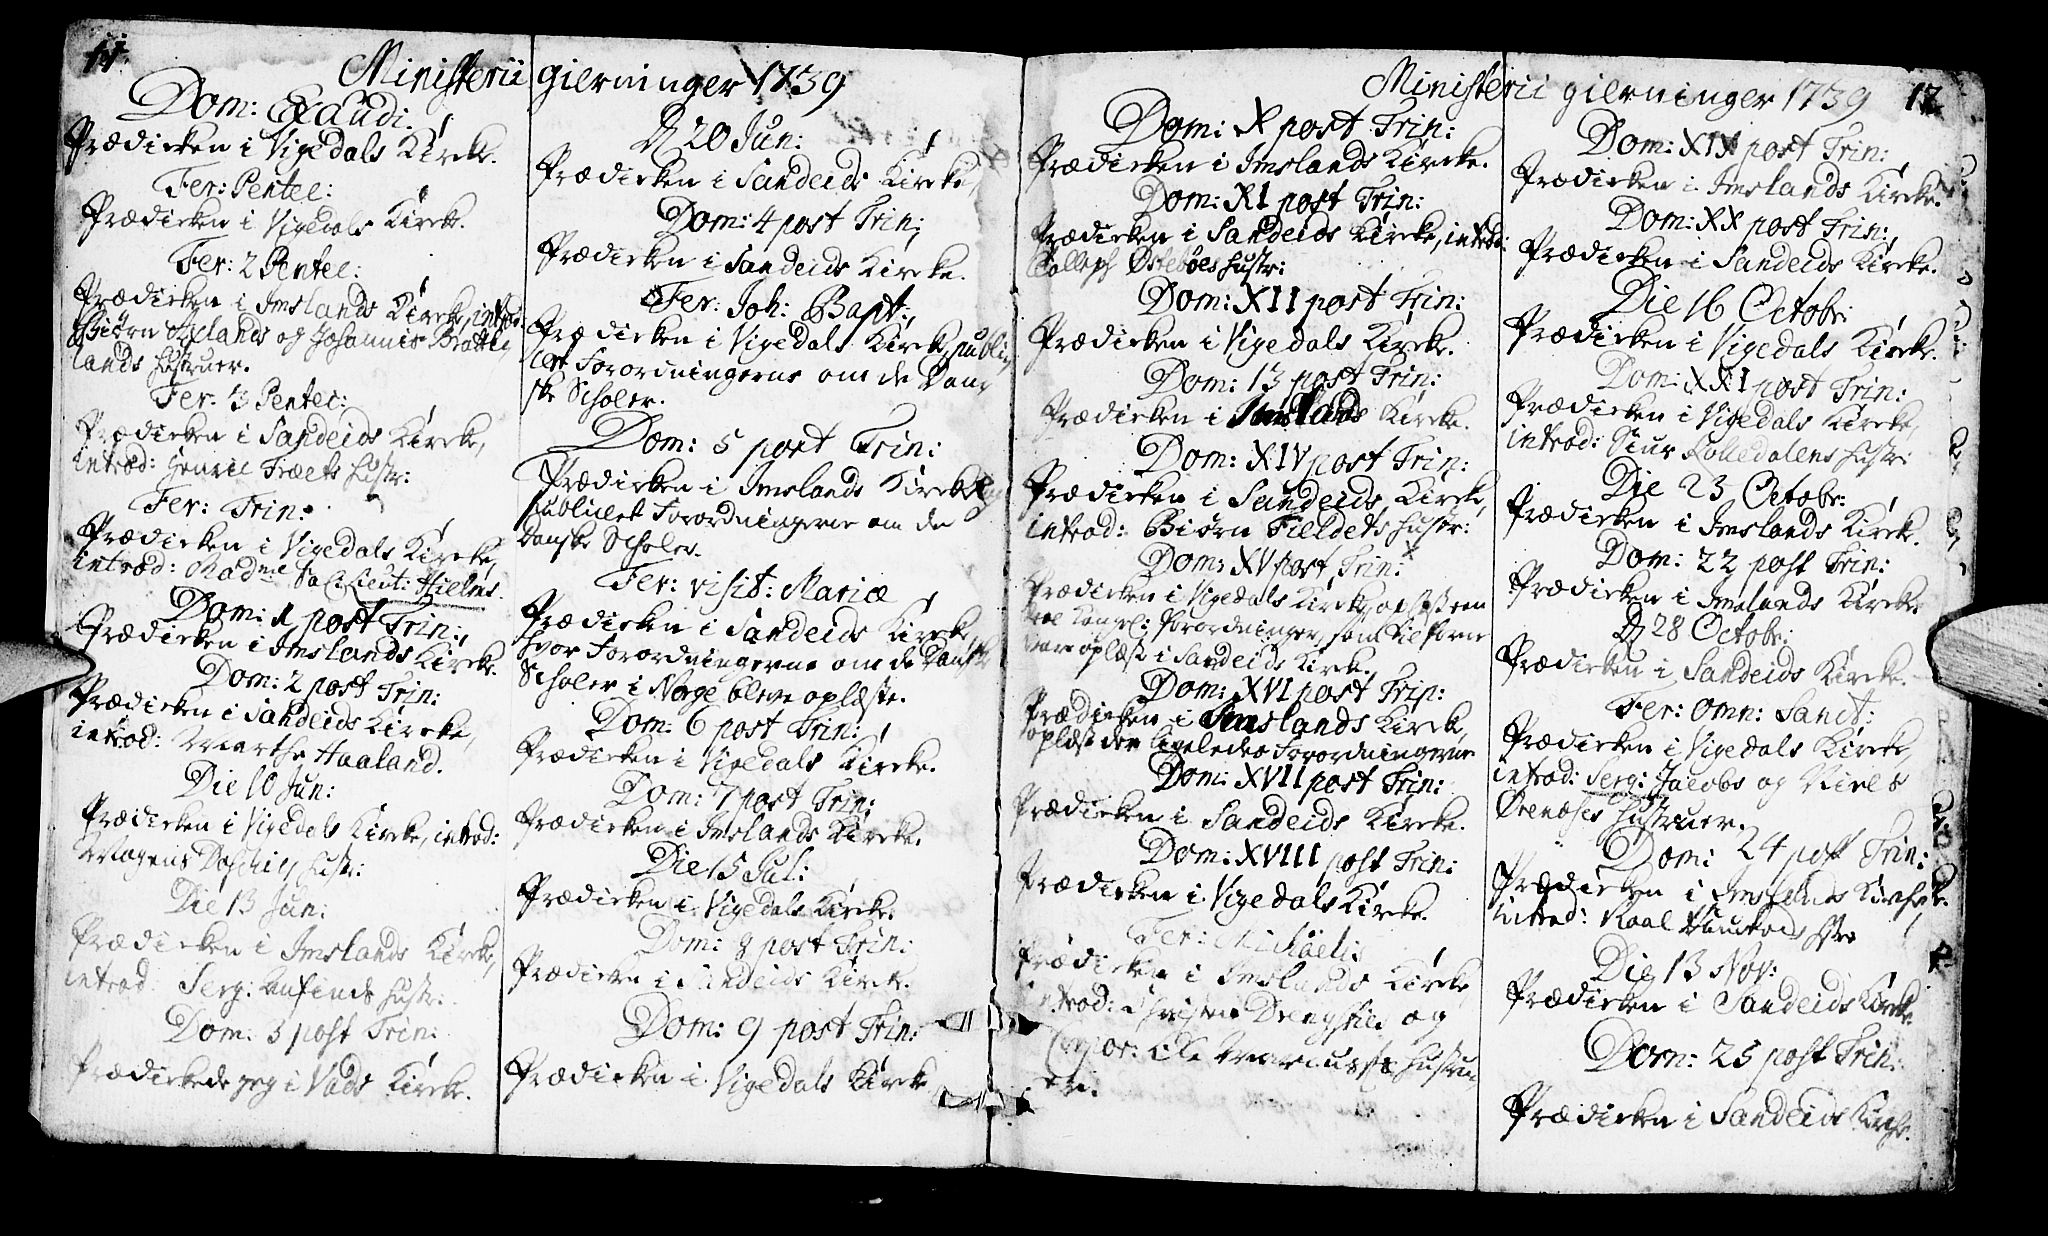 11.
Ministerii gierninger 1739
Dom: Exaudi.
Prædicken i Vigedals Kircke.
Fer: Pentec:
Prædicken i Vigedals Kircke.
Fer: 2 Pentec:
Prædicken i Imslands Kircke, introd:
Biørn og Johannis Bratte
lands Hustruer.
Fer. 3 Pentec:
Prædicken i Sandeids Kircke,
introd: Henric Træets Hustr:
Fer: Trin:
Prædicken i Vigedals Kircke,
introd: Madme Sal: Lieut: Hielms.
Dom: 1 post Trin:
Prædicken i Imslands Kircke.
Dom: 2 post Trin:
Prædicken i Sandeids Kircke,
introd: Marthe Haaland.
Die 10 Jun:
Prædicken i Vigedals Kircke, introd:
Mogens Hustr:
Die 13 Jun:
Prædicken i Imslands Kircke,
introd: Serg: Hustr:
Dom: 3 post Trin:
Prædickede jeg i Vads Kircke.
D 20 Jun:
Prædicken i Sandeids Kircke,
Dom: 4 post Trin:
Prædicken i Sandeids Kircke.
Fer: Joh: Bapt:
Prædicken i Vigedals Kircke, publi
cert Forordningerne om de Dan
ske Scholer.
Dom: 5 post Trin:
Prædicken i Imslands Kircke og
publicert Forordningerne om de
Danske Scholer.
Fer: visit: Mariæ
Prædicken i Sandeids Kircke,
hvor Forordningerne om de Danske
Scholer i Norge bleve oplæste.
Dom: 6 post Trin:
Prædicken i Vigedals Kircke.
Dom: 7 post Trin:
Prædicken i Imslands Kircke.
Die 15 Jul:
Prædicken i Vigedals Kircke.
Dom: 8 post Trin:
Prædicken i Sandeids Kircke.
Dom: 9 post Trin:
Prædicken i Vigedals Kircke
Ministerii gierninger 1739 12
Dom: X post Trin:
Prædicken i Imslands Kircke.
Dom: XI post Trin:
Prædicken i Sandeids Kircke, introd:
Østebøes Hustr:
Dom: XII post Trin:
Prædicken i Vigedals Kircke.
Dom: 13 post Trin:
Prædicken i Imslands Kircke.
Dom: XIV post Trin:
Prædicken i Sandeids Kircke,
introd: Biørn Fieldets Hustr:
Dom: XV post Trin:
Prædicken i Vigedals Kircke,
Kongel: Forordninger, som tilforne
vare oplæst i Sandeids Kircke.
Dom: XVI post Trin:
Prædicken i Imslands Kircke,
oplæst der ligeledes Forordningerne
Dom: XVII post Trin:
Prædicken i Sandeids Kircke.
Dom: XVIII post Trin:
Prædicken i Vigedals Kircke.
Fer: Michaelis
Prædicken i Imslands Kircke
introd: og
Corpor: Ole Hustru
er.
Dom: XIX post Trin:
Prædicken i Imslands Kircke.
Dom: XX post Trin:
Prædicken i Sandeids Kircke.
Die 16 Octobr:
Prædicken i Vigedals Kircke.
Dom: XXI post Trin:
Prædicken i Vigedals Kircke,
introd: Siur Hustr:
Die 23 Octobr:
Prædicken i Imslands Kircke.
Dom: 22 post Trin:
Prædicken i Imslands Kircke
D 28 Octobr:
Prædicken i Sandeids Kircke.
Fer: Omn: Sanct:
Prædicken i Vigedals Kircke,
introd: Serg: Jacobs og Niels
Hustruer.
Dom: 24 post Trin:
Prædicken i Imslands Kircke.
introd:
Die 13 Nov:
Prædicken i Sandeids Kircke.
Dom: 25 post Trin:
Prædicken i Sandeids Kircke.